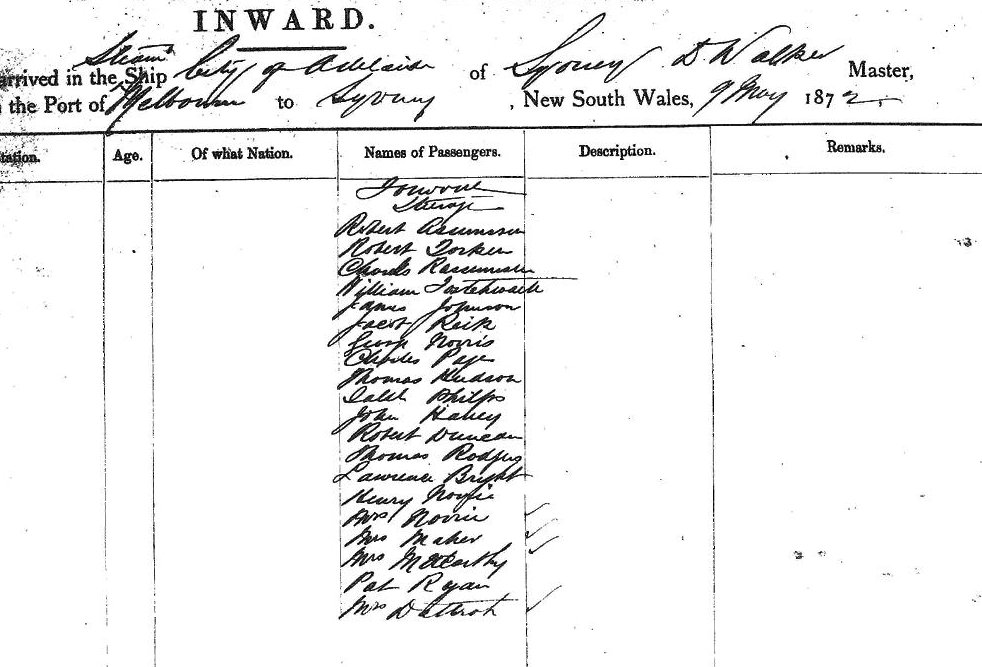 INWARD.
Steam
arrived in the Ship City of Adelaide of Sydney D Walker Master,
the Port of Melbourne to Sydney, New South Wales, 9 May 1872.
Age. Of what Nation. Names of Passengers. Description. Remarks.
Steerage
Robert
Robert
Charles Rasmussen
William
James Johnson
Jacob Reik
George Norris
Charles Page
Thomas Hudson
Caleb Philps
John Haley
Robert Duncan
Thomas Rodgers
Lawrence Bright
Henry
Mrs Norrie
Mrs Maher
Mrs McCarthy
Pat Ryan
Mrs